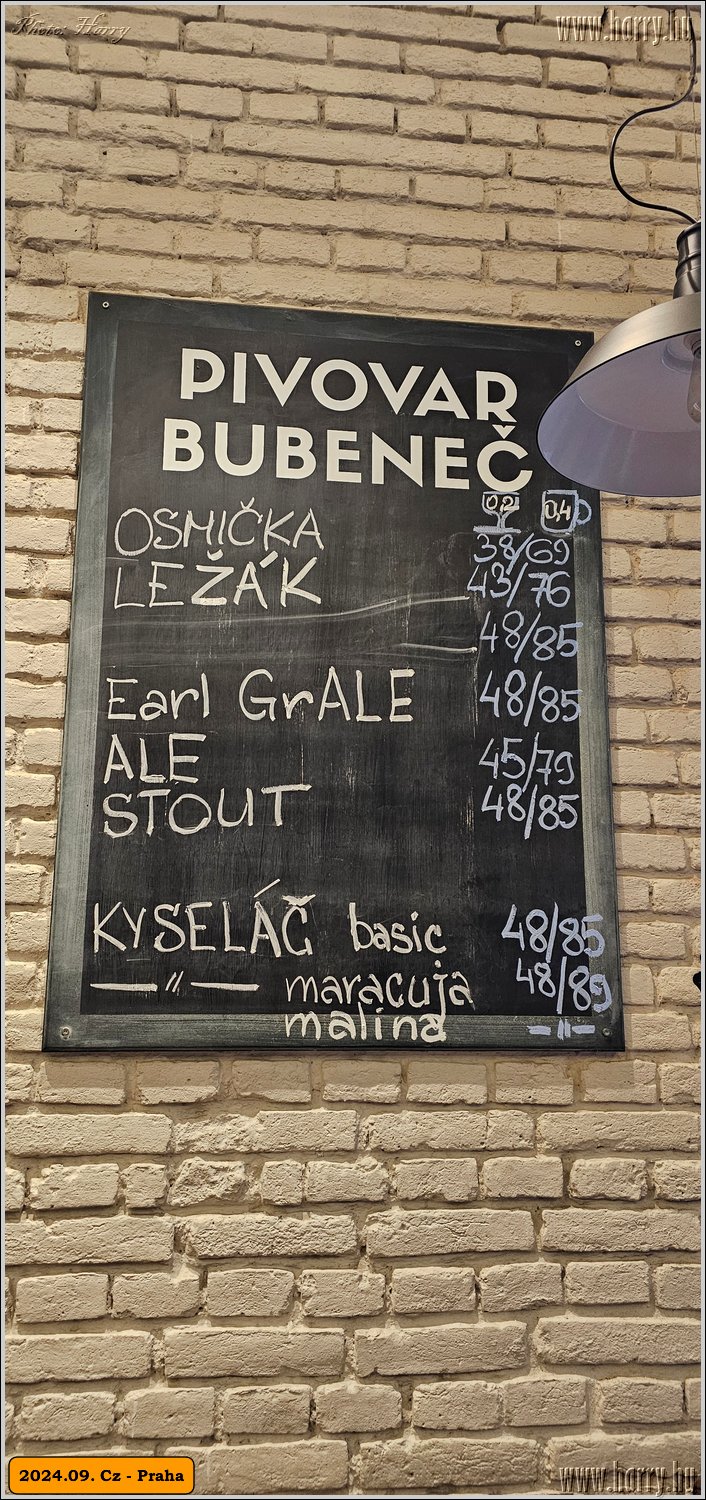 Photo: Harry
www.harry.hu
PIVOVAR
BUBENEČ
0,2 0,4
OSMIČKA 38/69
LEŽÁK 43/76
48/85
Earl GrALE 48/85
ALE 45/79
STOUT 48/85
KYSELÁČ basic 48/85
—〃— maracuja 48/89
malina —〃—
2024.09. Cz - Praha
www.harry.hu